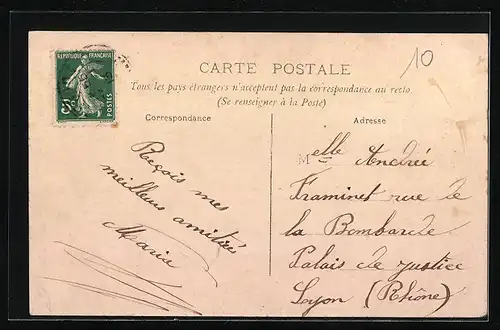 10
REPUBLIQUE FRANÇAISE
5c
POSTES
CARTE POSTALE
Tous les pays étrangers n'acceptent pas la correspondance au recto.
(Se renseigner à la Poste)
Correspondance
Reçois mes
meilleurs amitiés
Marie
Adresse
Melle Andrée
Framinet rue de
la Bombarde
Palais de justice
Lyon (Rhône)